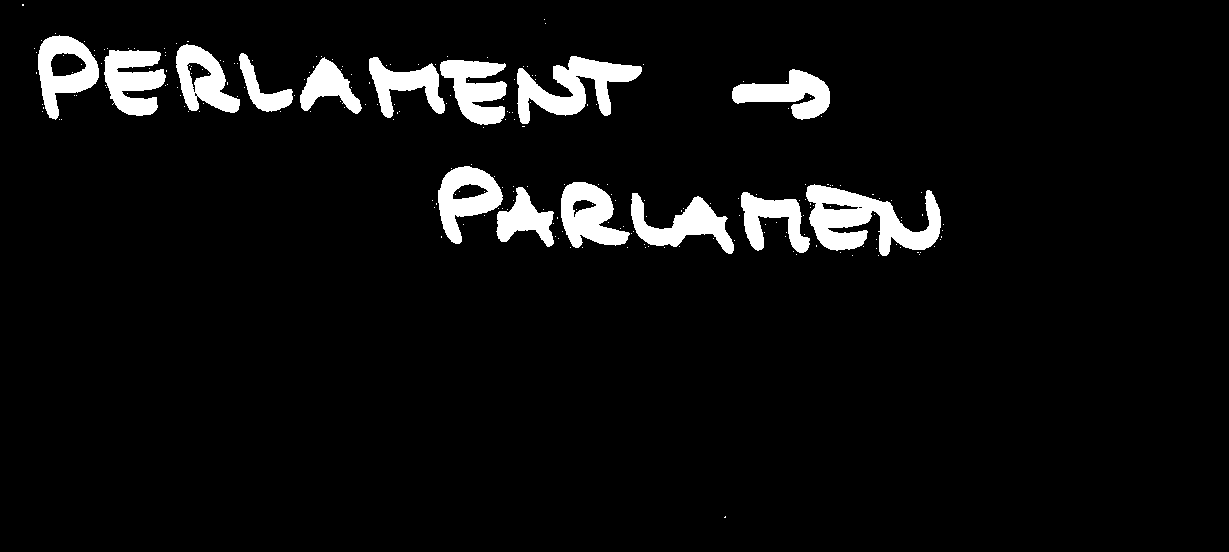 PERLAMENT →
PARLAMEN